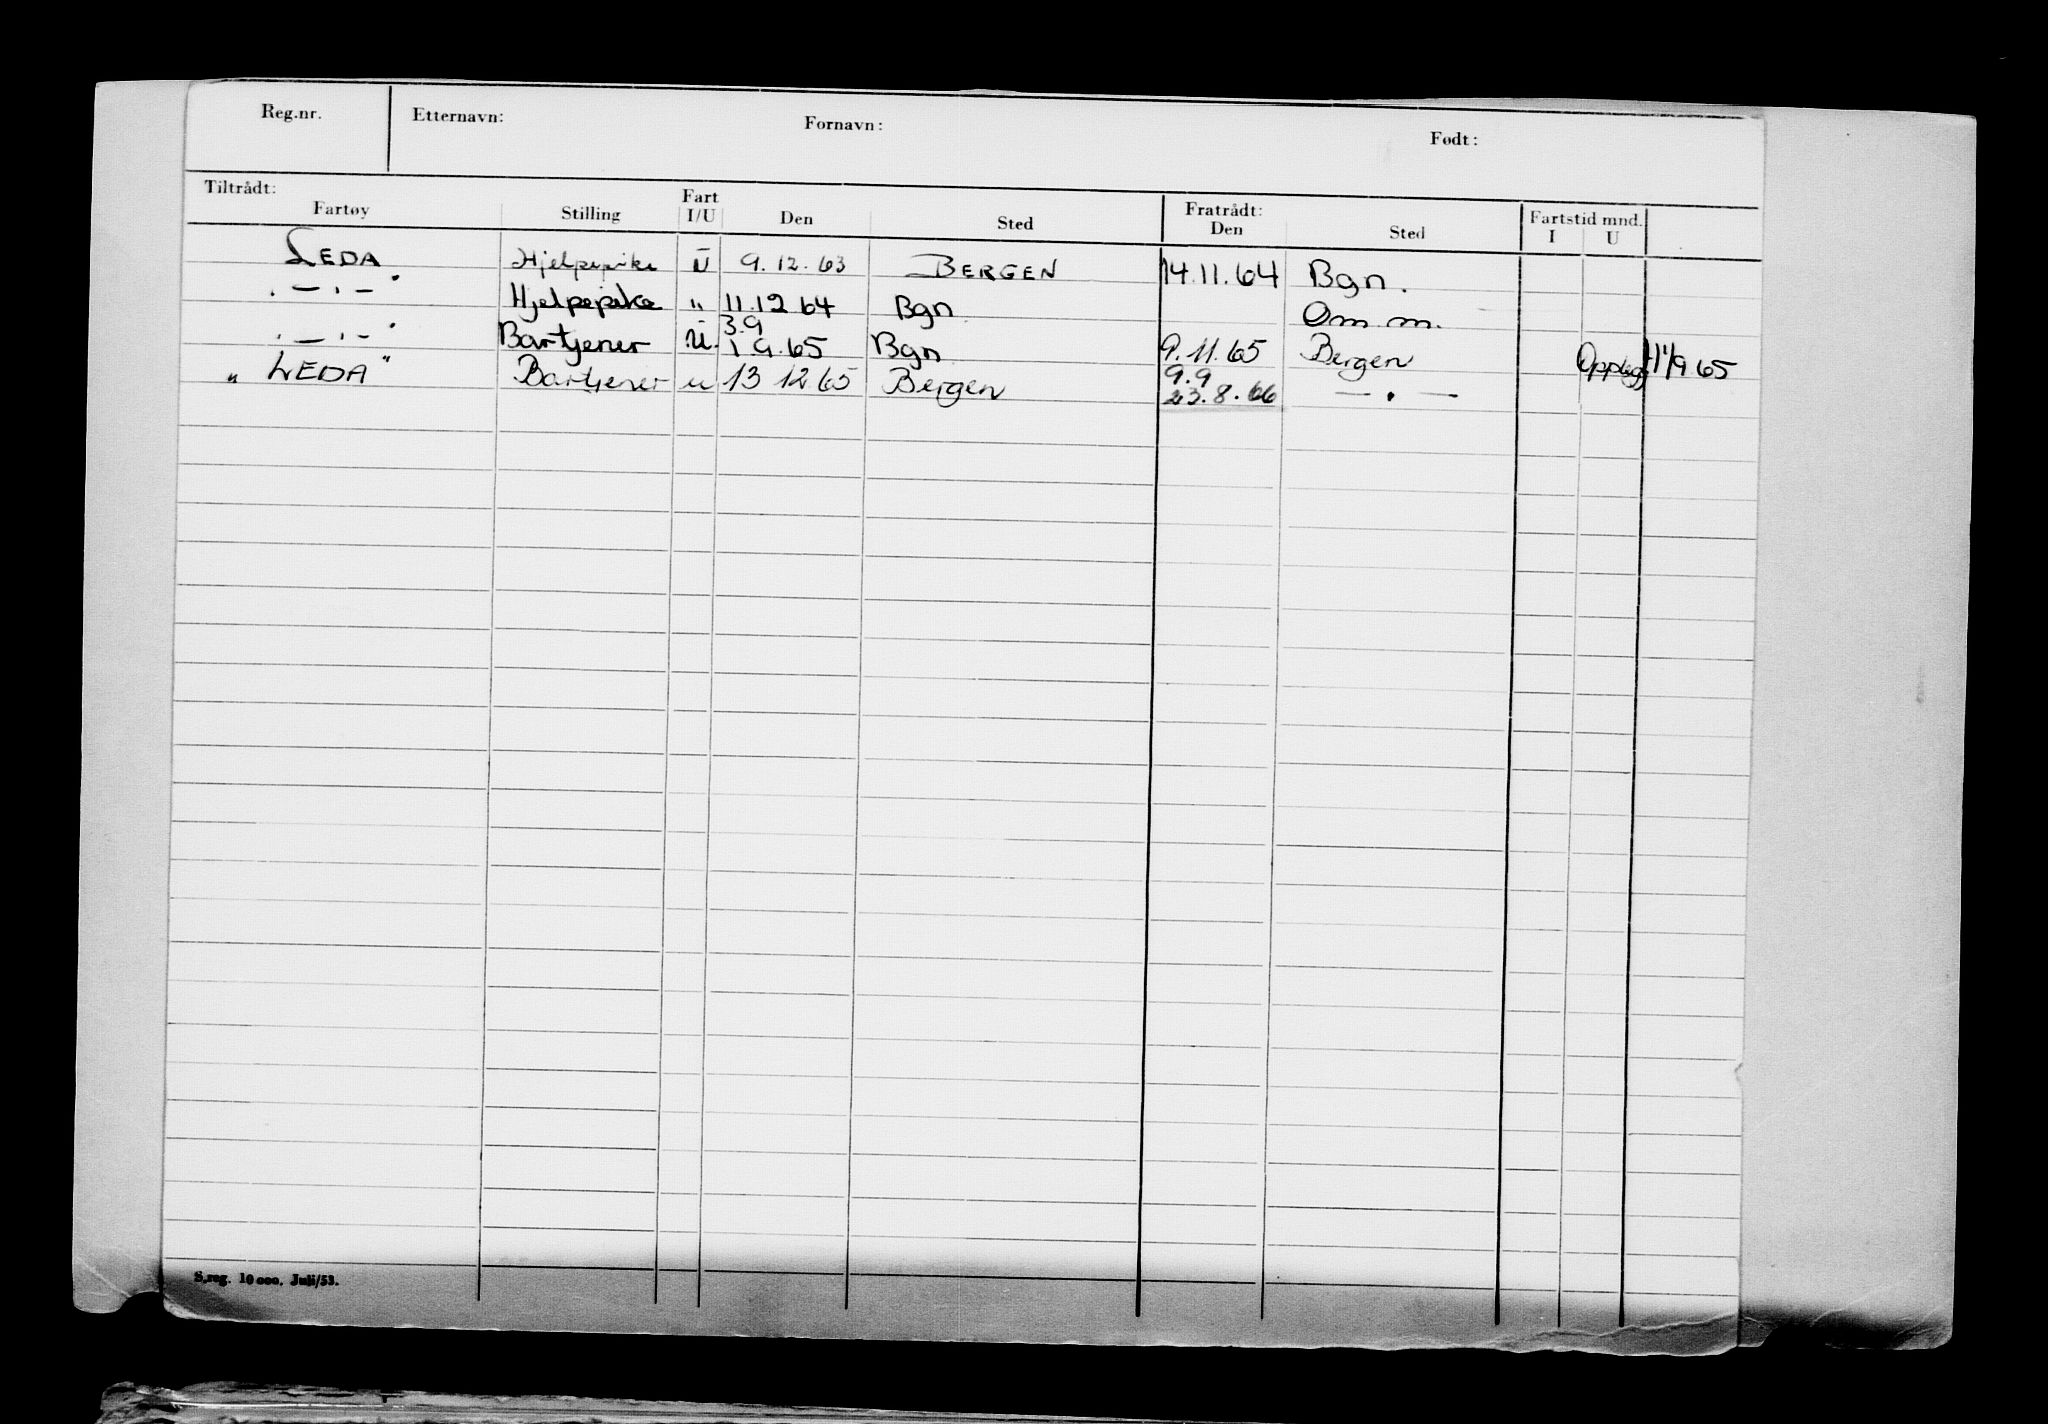 Reg.nr. Etternavn: Fornavn: Født:
Tiltrådt: Fratrådt: Fartstid mnd.
Fartøy Stilling Fart I/U Den Sted Den Sted I U
LEDA Hjelpepike U 9.12.63 BERGEN 14.11.64 Bgn.
" — " — " Hjelpepike " 11.12 64 Bgn Om.m.
3.9
" — " — " Bartjener U. 1 9.65 Bgn 9.11.65 Bergen Opplag 11/9 65
9.9
" LEDA " Bartjener u 13 12 65 Bergen 23.8.66 — " —
S.reg. 10 000. Juli/53.